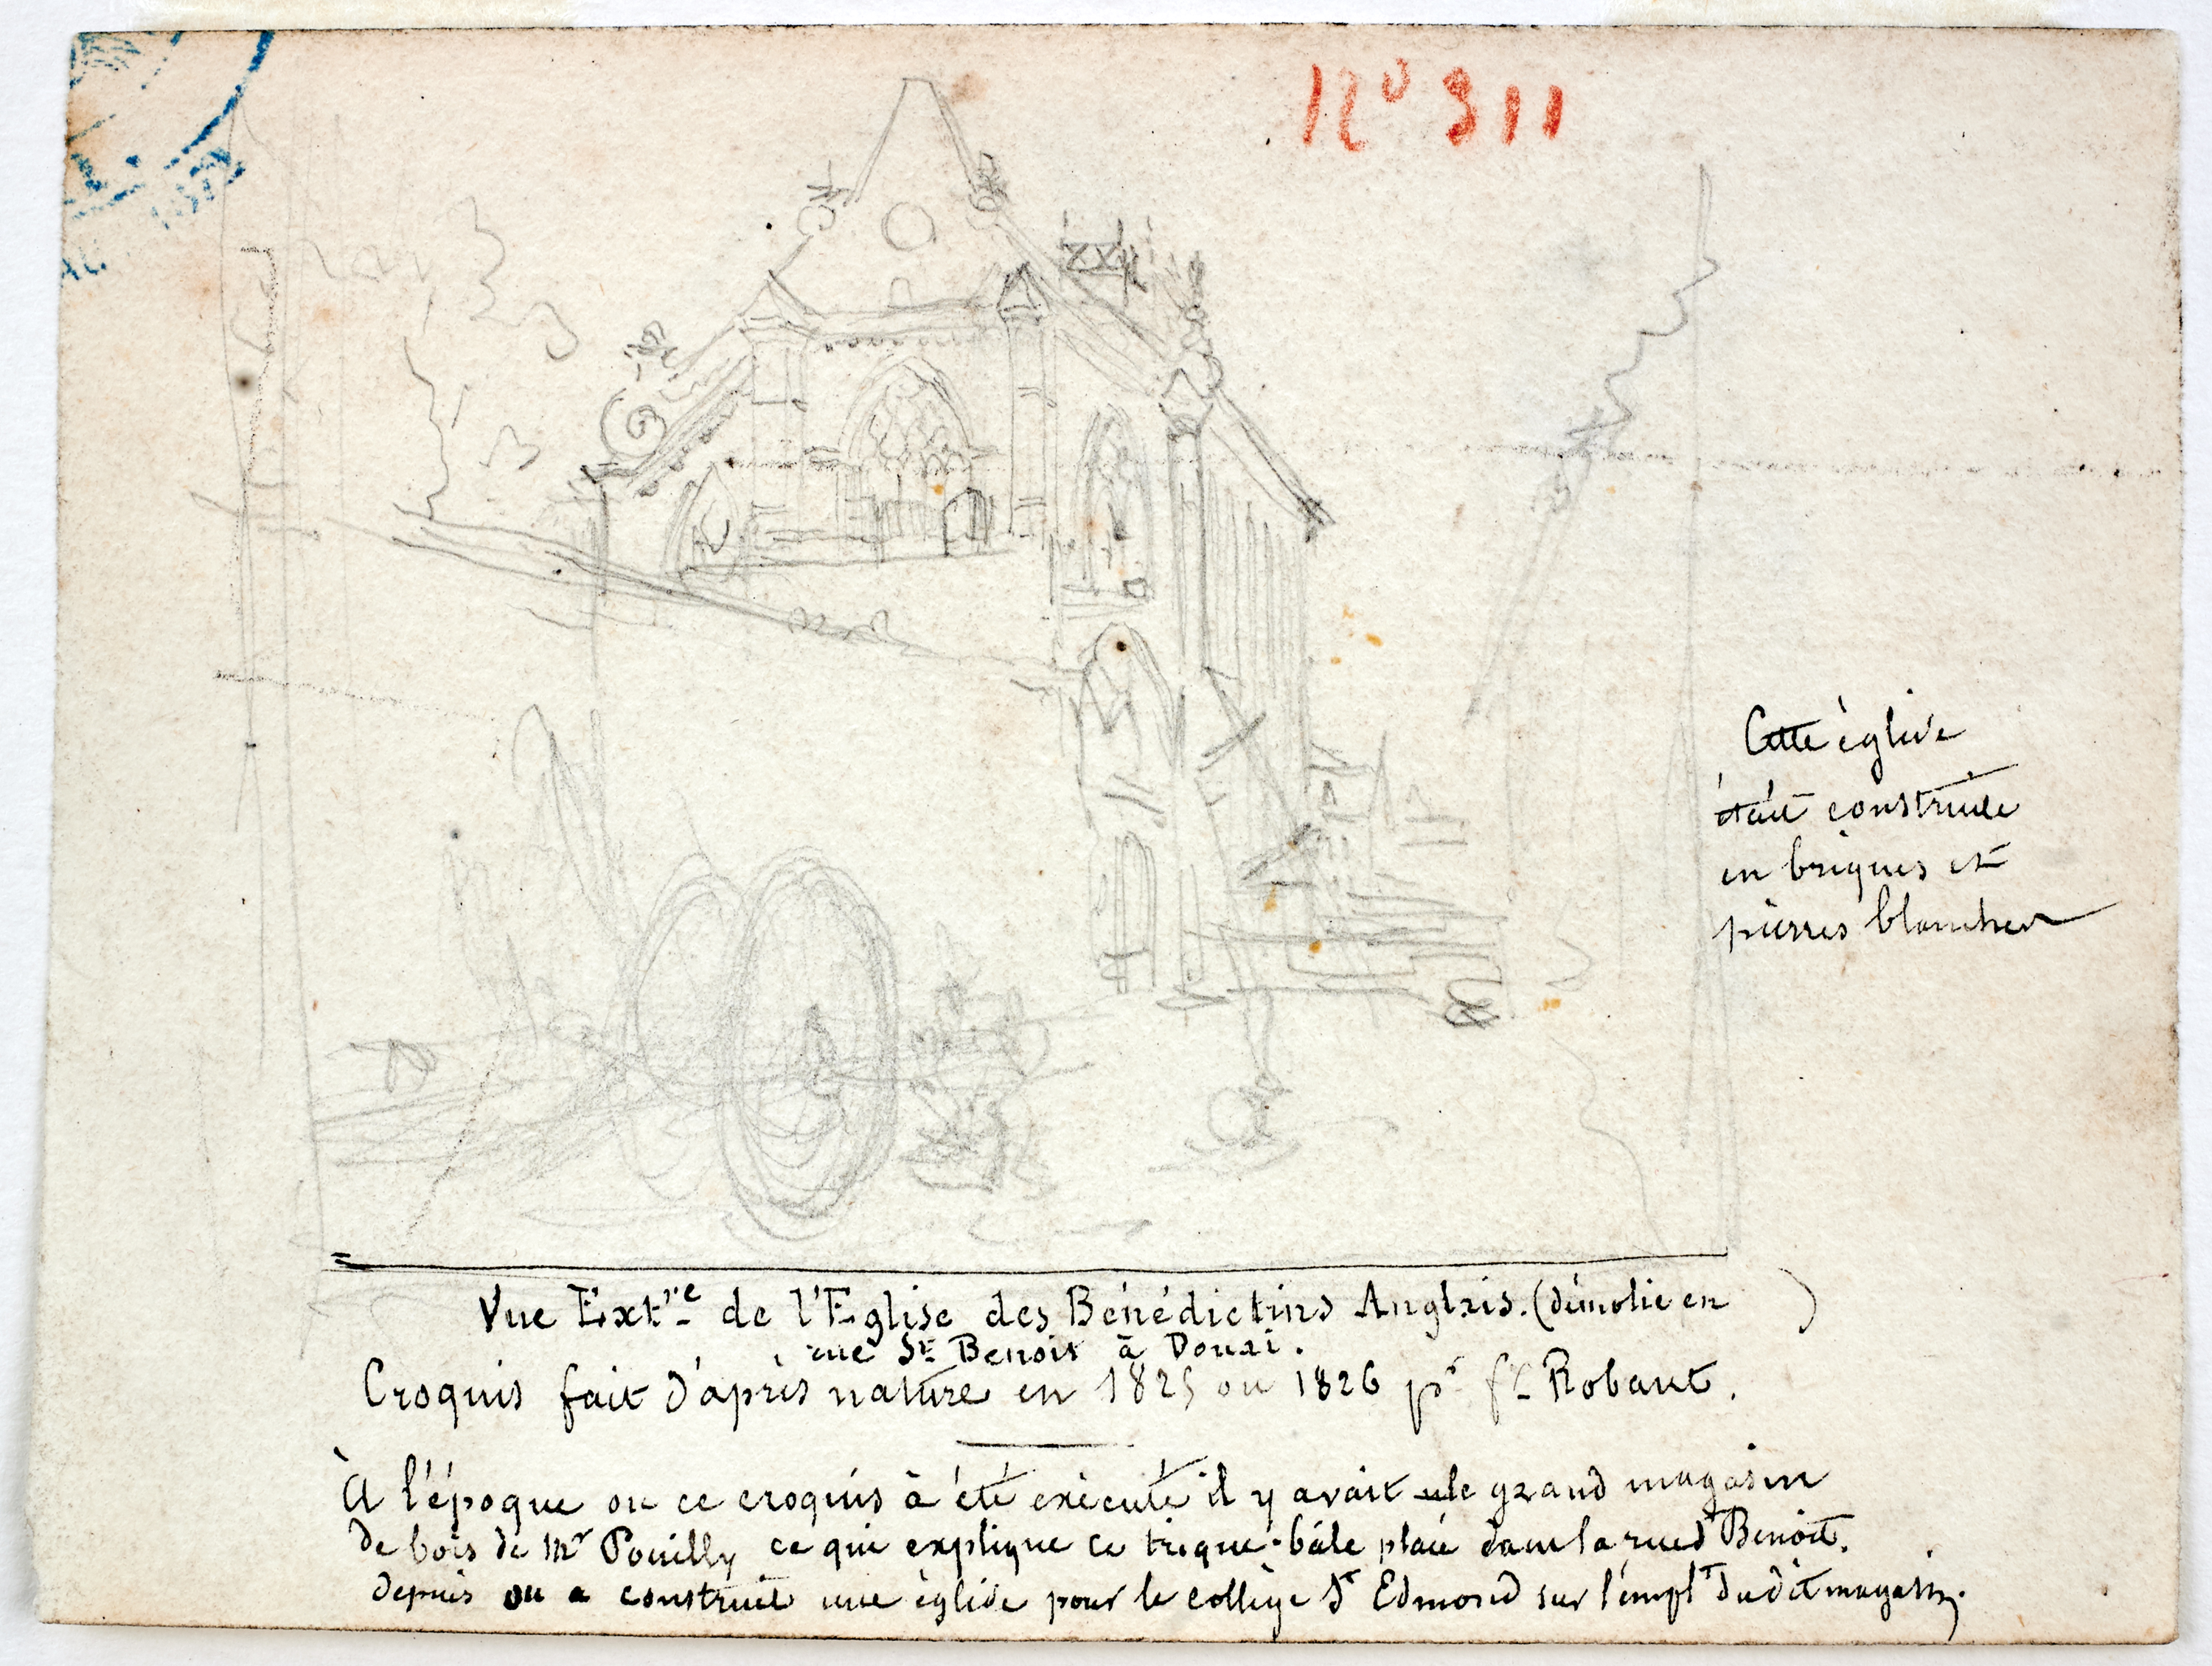 Nº 311
Cette église
était construite
en briques et
pierres blanches
Vue Extre de l'Eglise des Bénédictins Anglais. (démolie en )
rue St Benoit à Douai.
Croquis fait d'après nature en 1825 ou 1826 pr fx Robaut.
À l'époque ou ce croquis à été exécuté il y avait le grand magasin
de bois de Mr Pouilly ce qui explique ce trique-bale placé dans la rue St Benoit.
depuis on a construit une église pour le collège St Edmond sur l'emplt du dit magasin.